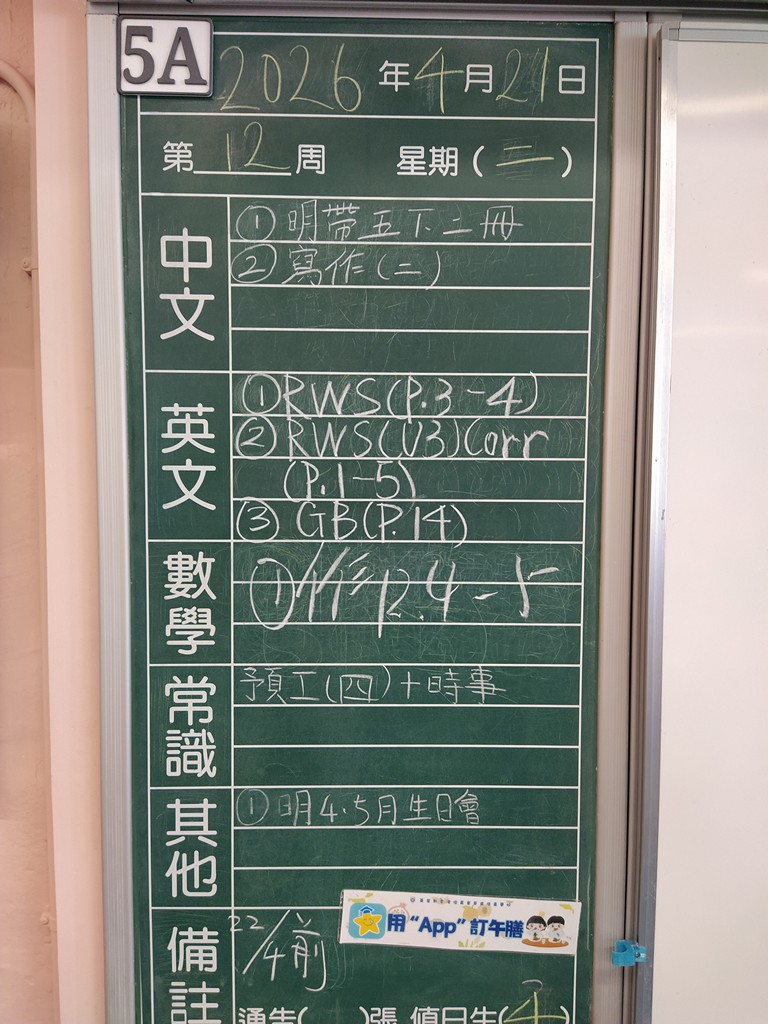 5A
2026年4月21日
第12周 星期(二)
中文
①明帶五下二冊
②寫作(二)
英文
①RWS(P.3-4)
②RWS(U3)Corr
(P.1-5)
③GB(P.14)
數學
①作P.4-5
常識
預工(四)+時事
其他
①明4.5月生日會
備註
22/4前
用“App”訂午膳
通告( )張 值日生(4)